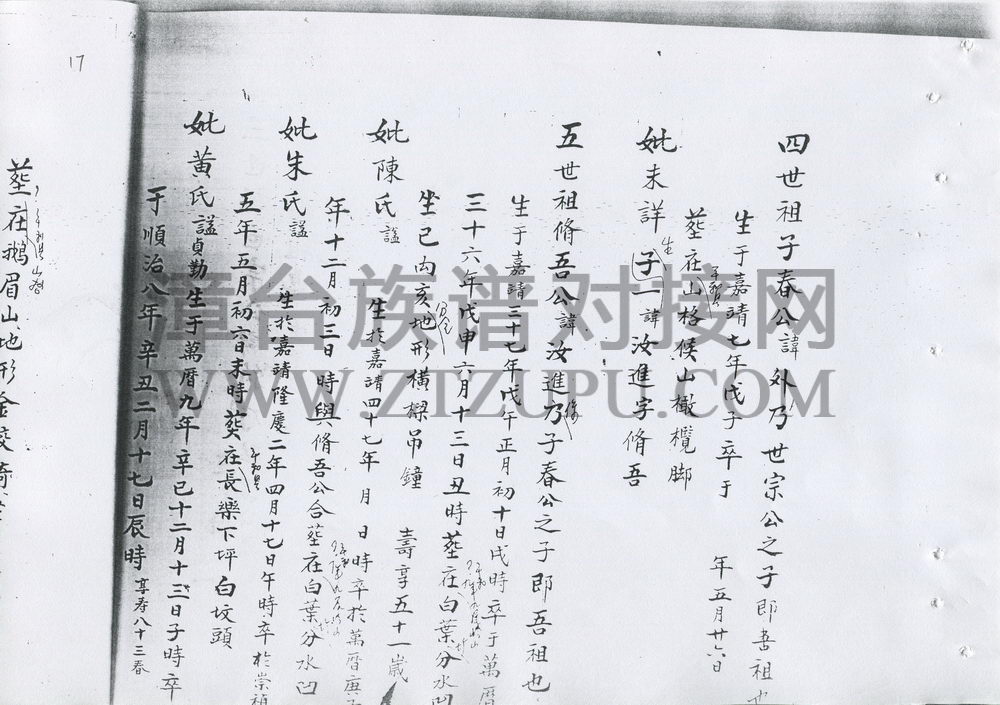 四世祖子春公諱外乃世宗公之子即吾祖也
生于嘉靖七年戊子卒于 年五月廿六日
葬在山格侯山橄欖脚
妣未詳 生子一諱汝進字脩吾
五世祖脩吾公諱汝進乃子春公之子即吾祖也
生于嘉靖三十七年戊午正月初十日戌時卒于萬曆
三十六年戊申六月十三日丑時葬在白葉分水凹
坐巳向亥地形橫樑吊鐘 壽享五十一歲
妣陳氏諡 生於嘉靖四十七年 月 日時卒於萬曆庚子
年十二月初三日時與脩吾公合葬在白葉分水凹
妣朱氏諡 生於嘉靖隆慶二年四月十七日午時卒於崇禎
五年五月初六日未時葬在長樂下坪白墳頭
妣黃氏諡貞勤生于萬曆九年辛巳十二月十三日子時卒
于順治八年辛丑二月十七日辰時 享寿八十三春
葬在鵝眉山地形金交椅
17
漳台族谱对接网
WWW.ZTZUPU.COM